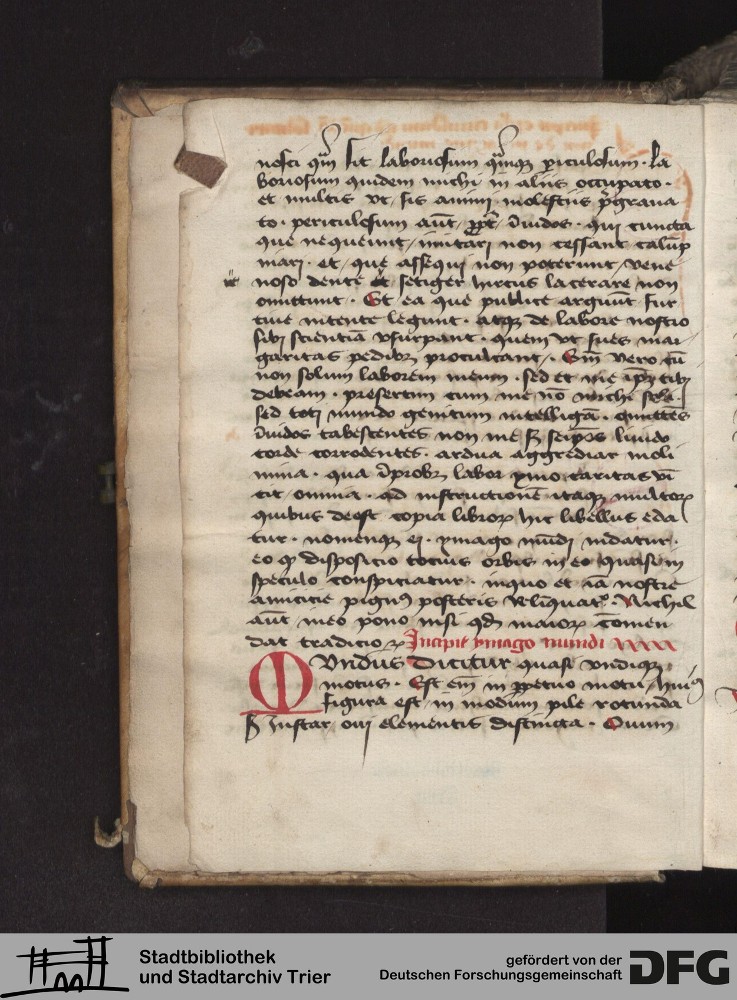 nosci qm̄ sit laboriosum qm̄qꝫ ꝑiculosum · la
boriosum quidem michi in aliis occupato ·
et multis vt / sis animi molestiis p̄graua
to · periculosum aūt / ꝓpt̄ / īuidos · qui cuncta
que nequeunt / imitari non cessant calūp
niari · et / que assequi non poterunt / vene
noso dente ut setiger hircus lacerare non
omittunt · Et ea que publice arguūt fur
tiue intente legunt · atqꝫ de labore nostro
sibi scientiā vsurpant · quem vt sues mar
garitas pedibꝫ proculcant / · Em̄ vero cū
non solum laborem meum · sed et me ip̄m tibi
debeam · presertim cum me nō michi solū ·
sed toti mundo genitum intelligā · omittēs
īuidos tabescentes non me sꝫ seip̄os liuido
corde corrodentes · ardua aggrediar moli
mina · qua īprobꝫ labor ymo caritas vī
cit / omnia · ad instructionē itaqꝫ multoꝝ
quibus deest copia libroꝝ hic libellus eda
tur · nomenqꝫ ei · ymago mūdi indatur ·
eo qꝫ disposicio tocius orbis in eo quasi in
speculo conspiciatur · inquo et iā nostre
amicicie pignꝰ posteris relinquatꝛ · Nichil
aūt in eo pono nisi qd̄ maioꝝ com̄en
dat tradicio Incipit ymago mundi
MVndus dicitur quasi vndiqꝫ
motus · Est em̄ in ꝑpetuo motu / huiꝰ
figura est / in modum pile rotunda
sꝫ Instar / oui elementis distincta · Ouum
Stadtbibliothek
und Stadtarchiv Trier
gefördert von der
Deutschen Forschungsgemeinschaft
DFG